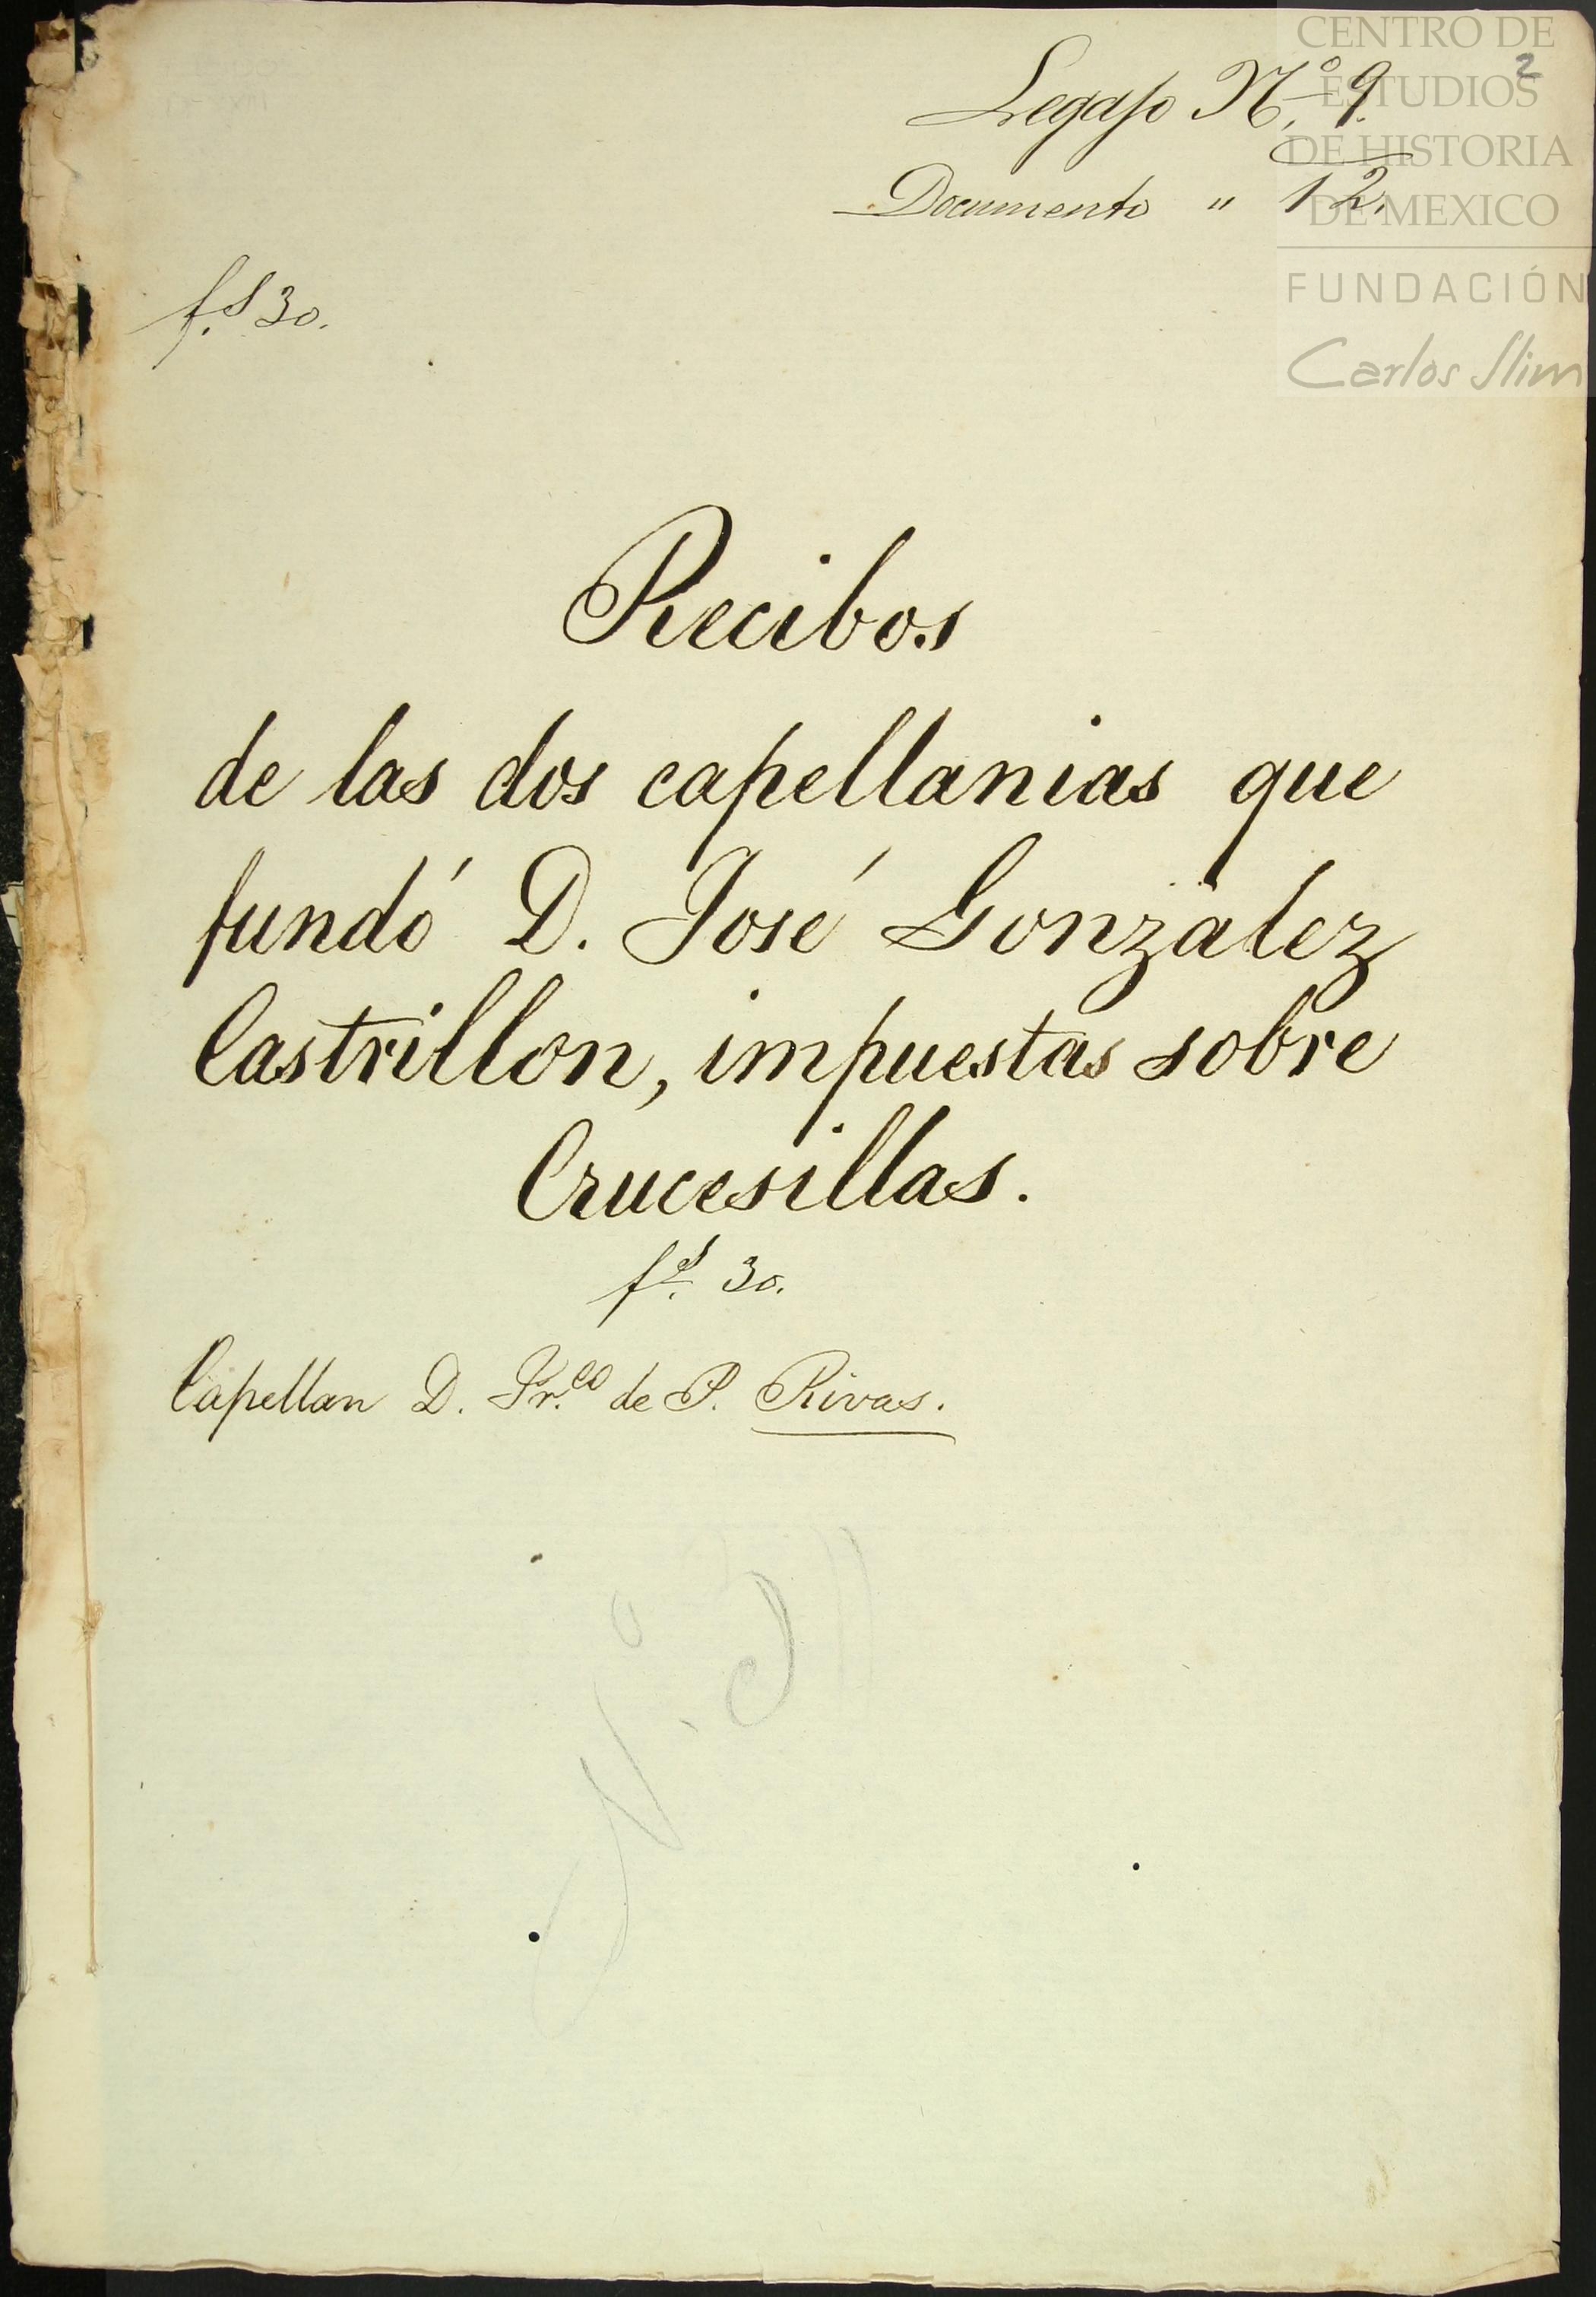 CENTRO DE
ESTUDIOS
DE HISTORIA
DE MEXICO
FUNDACIÓN
Carlos Slim
2
Legajo N.º 9.
Documento " 12.
f.s 30.
Recibos
de las dos capellanias que
fundó D. José Gonzalez
Castrillon, impuestas sobre
Crucesillas.
f.s 30.
Capellan D. Fr.co de P. Rivas.
N.º